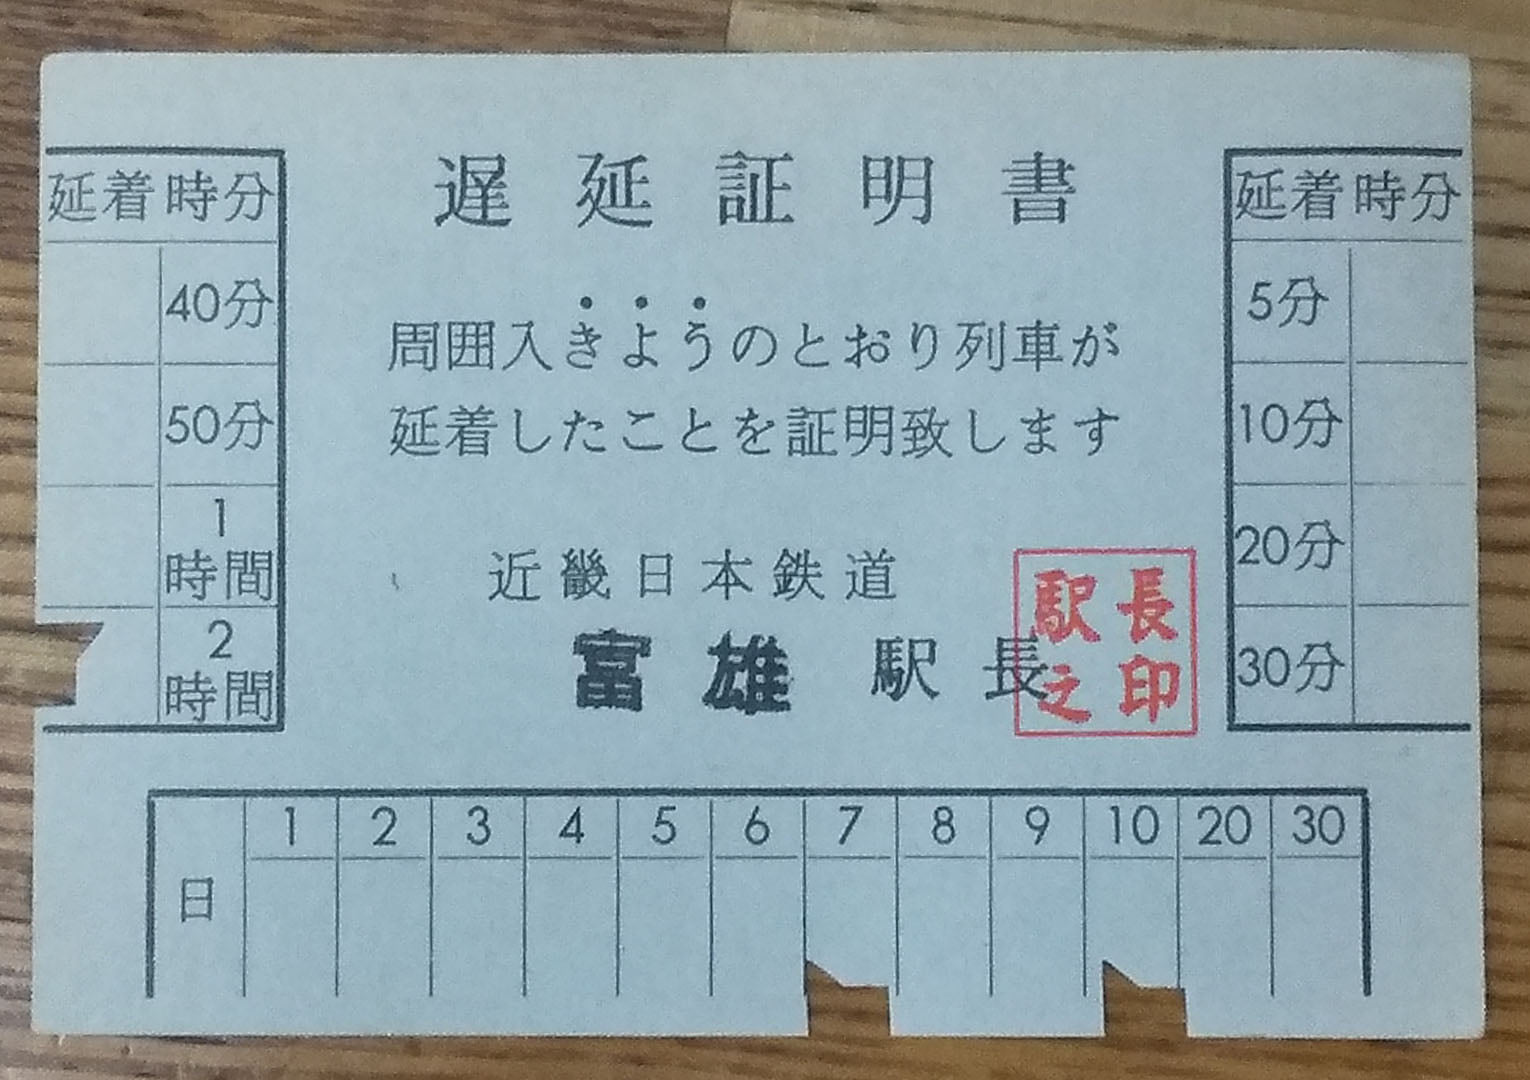 遅延証明書
周囲入きようのとおり列車が
延着したことを証明致します
近畿日本鉄道
富雄 駅長
駅長之印
延着時分
40分
50分
1時間
2時間
延着時分
5分
10分
20分
30分
日 1 2 3 4 5 6 7 8 9 10 20 30